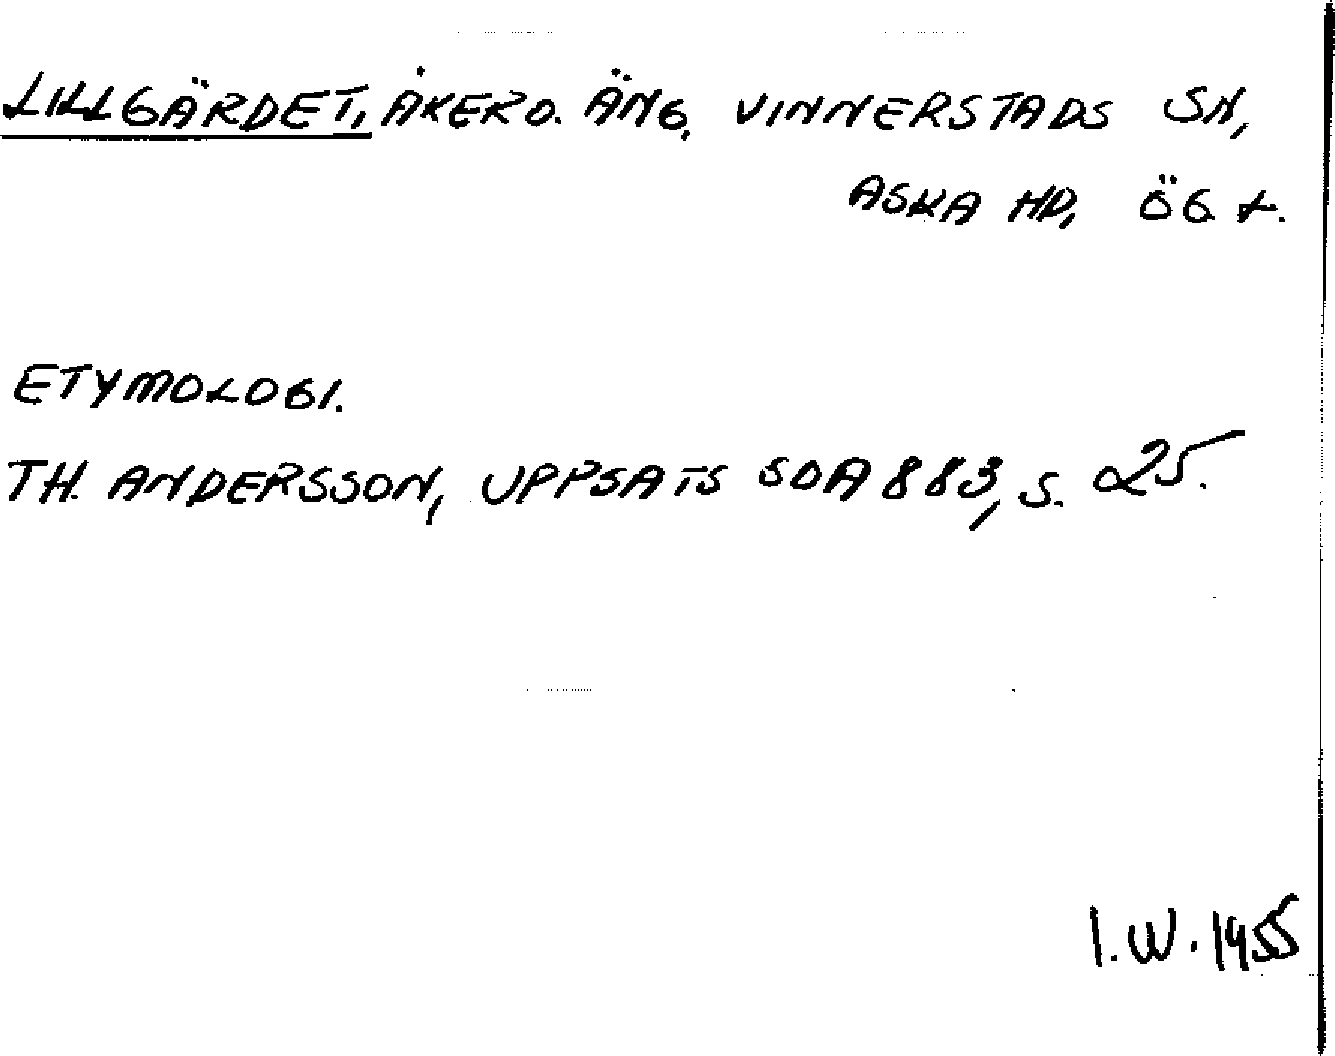 LILLGÄRDET, ÅKER O. ÄNG, VINNERSTADS SN,
ASKA HD, ÖG L.
ETYMOLOGI.
TH. ANDERSSON, UPPSATS SOA 883, S. 25.
I. W. 1955